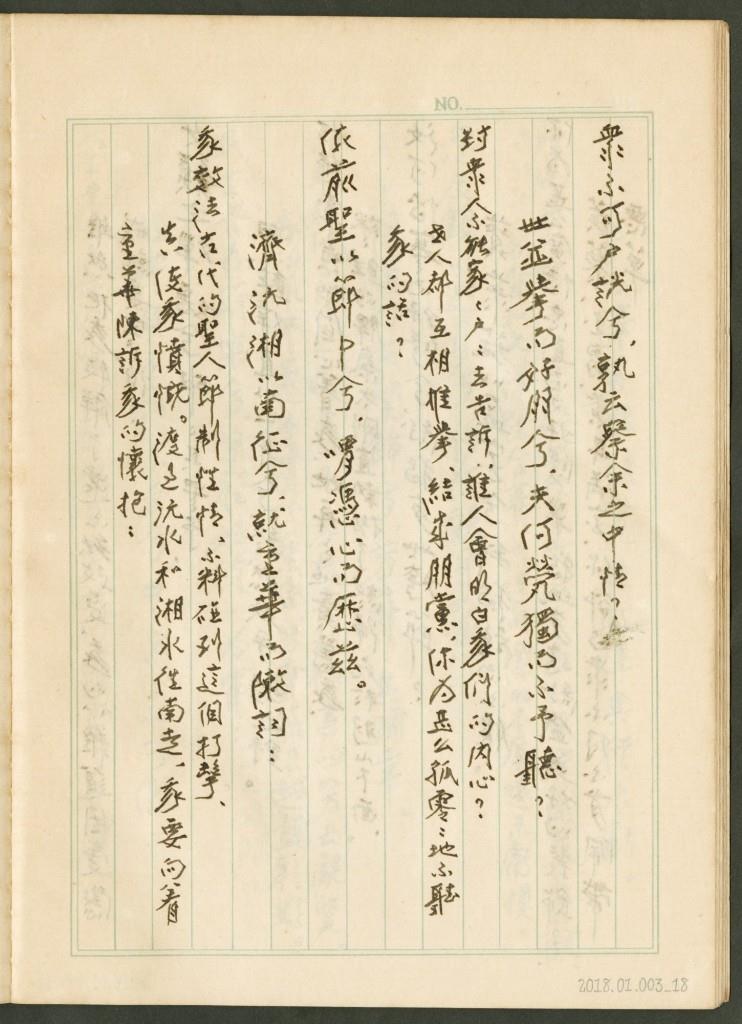 NO.
眾不可戶說兮、孰云察余之中情？
世並舉而好朋兮、夫何煢獨而不予聽？
對眾人不能家ミ戶ミ去告訴、誰人會明白我們的內心？
世人都互相推舉、結成朋黨、你為甚么孤零ミ地不聽
我的話？
依前聖以節中兮、喟憑心而歷茲。
濟沅湘以南征兮、就重華而敶詞：
我效法古代的聖人節制性情、不料碰到這個打擊、
真使我憤慨。渡過沅水和湘水往南走、我要向着
重華陳訴我的懷抱：
2018.01.003_18